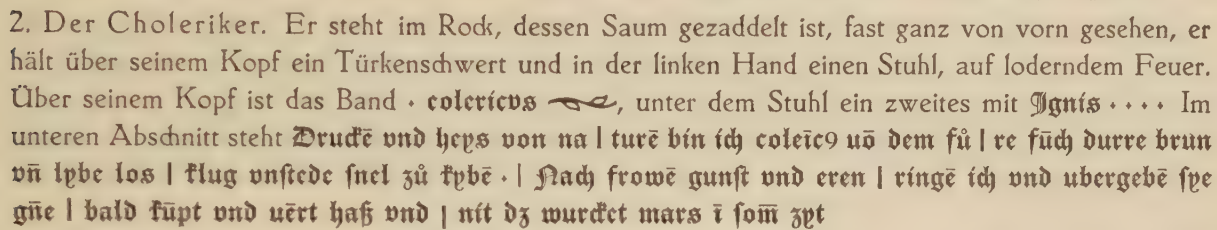 2. Der Choleriker. Er steht im Rock, dessen Saum gezaddelt ist, fast ganz von vorn gesehen, er
hält über seinem Kopf ein Türkenschwert und in der linken Hand einen Stuhl, auf loderndem Feuer.
Über seinem Kopf ist das Band · colericvs, unter dem Stuhl ein zweites mit Ignis · · · · Im
unteren Abschnitt steht Druckē vnd heys von na | turē bin ich coleic9 uō dem fů | re fūch durre brun
vn̄ lybe los | klug vnstede snel zů kybē · | Nach frowē gunst vnd eren | ringē ich vnd ubergebē sye
gn̄e | bald kūpt vnd uērt haß vnd | nit dz wurcket mars ī som̄ zyt